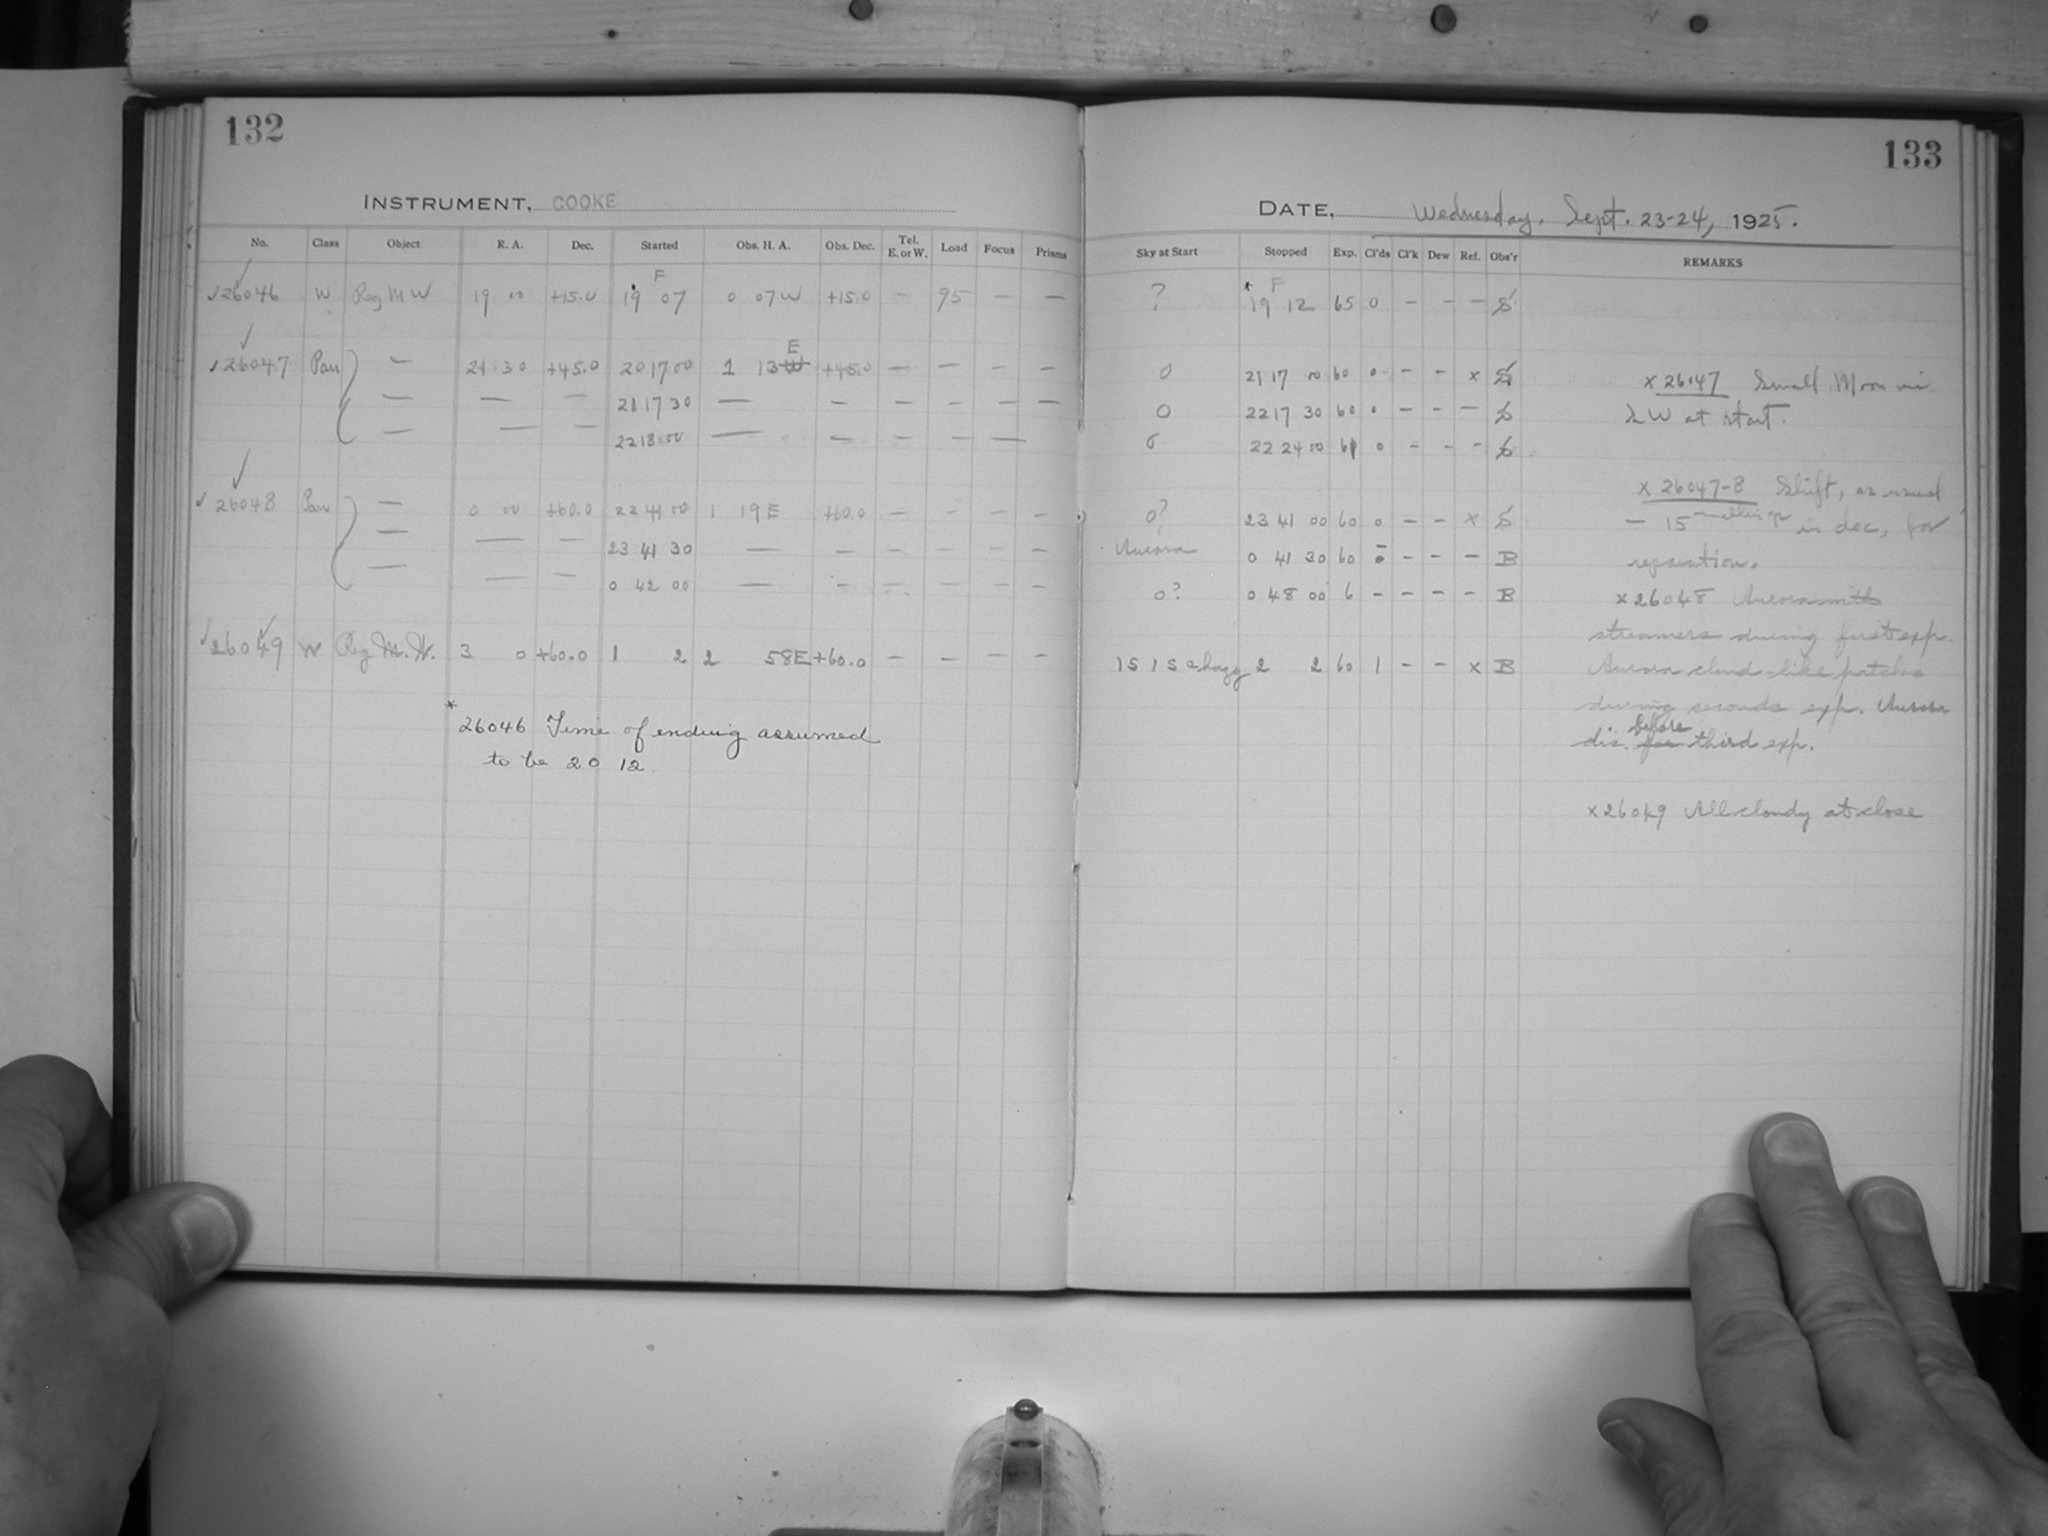 132
INSTRUMENT, COOKE
No. Class Object R. A. Dec. Started Obs. H. A. Obs. Dec. Tel. E. or W. Load Focus Prisms
F
✓26046 W Reg M W 19 00 +15.0 19 07 0 07 W +15.0 — 95 — —
E
✓26047 Pan — 21 30 +45.0 20 17 00 1 13 W +45.0 — — — —
— — — 21 17 30 — — — — — —
— — — 22 18 00 — — — — —
✓26048 Pan — 0 00 +60.0 22 41 00 1 19 E +60.0 — — — —
— — — 23 41 30 — — — — — —
— — — 0 42 00 — — — — — —
✓26049 W Reg M. W. 3 0 +60.0 1 2 2 58E +60.0 — — — —
* 26046 Time of ending assumed
to be 20 12
133
DATE, Wednesday, Sept. 23-24, 1925.
Sky at Start Stopped Exp. Cl'ds Cl'k Dew Ref. Obs'r REMARKS
* F
? 19 12 65 0 — — — S
0 21 17 00 60 0 — — x S x 26047 Small Moon in
0 22 17 30 60 0 — — — S SW at start.
0 22 24 00 6 0 — — — S
x 26047-8 Shift, as usual
0? 23 41 00 60 0 — — x S — 15 in dec, for
Aurora 0 41 30 60 0 — — — B reparation.
0? 0 48 00 6 — — — — B x 26048 Aurora with
streamers during first exp.
1 S 1 S e hazy 2 2 60 1 — — x B Aurora cloud-like patches
during seconds exp. Aurora
before
dis. for third exp.
x 26049 All cloudy at close